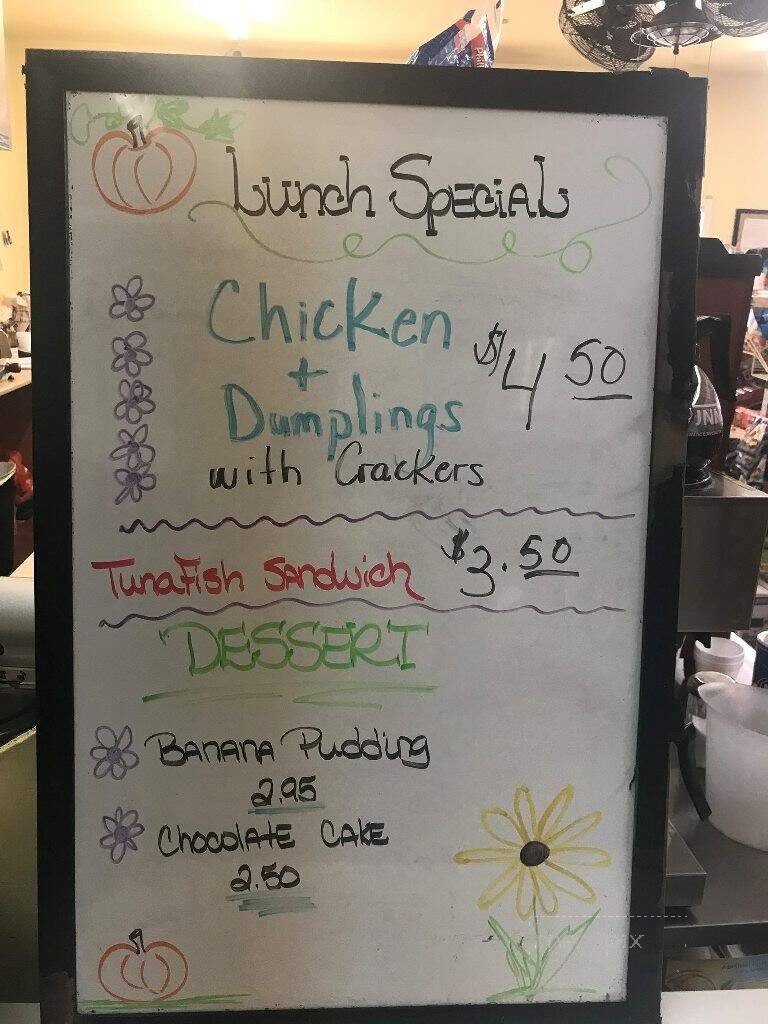 Lunch Special
Chicken
+
Dumplings
$4 50
with Crackers
Tunafish Sandwich $3.50
DESSERT
Banana Pudding
2.95
Chocolate Cake
2.50